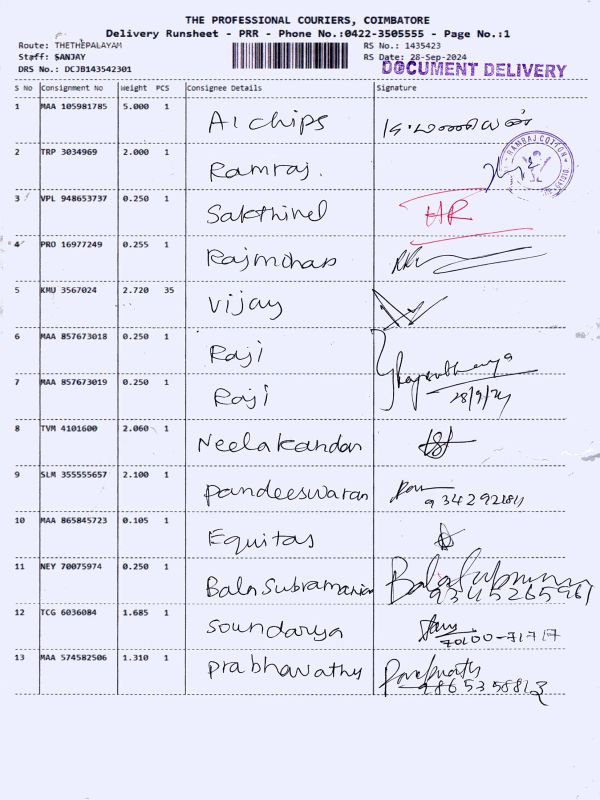 THE PROFESSIONAL COURIERS, COIMBATORE
Delivery Runsheet - PRR - Phone No.:0422-3505555 - Page No.:1
Route: THETHEPALAYAM RS No.: 1435423
Staff: SANJAY RS Date: 28-Sep-2024
DRS No.: DCJB143542301 DOCUMENT DELIVERY
S No Consignment No Weight PCS Consignee Details Signature
1 MAA 105981785 5.000 1 A1 chips
2 TRP 3034969 2.000 1 Ramraj.
RAMRAJ COTTON
3 VPL 948653737 0.250 1 Sakthivel HR
4 PRO 16977249 0.255 1 Rajmohan
5 KMU 3567024 2.720 35 Vijay
6 MAA 857673018 0.250 1 Raji
7 MAA 857673019 0.250 1 Raji 28/9/24
8 TVM 4101600 2.060 1 Neelakandan
9 SLM 355555657 2.100 1 Pandeeswaran
10 MAA 865845723 0.105 1 Equitas
11 NEY 70075974 0.250 1 Bala Subramanian
9345265961
12 TCG 6036084 1.685 1 Soundarya
70100-71717
13 MAA 574582506 1.310 1 Prabhavathy